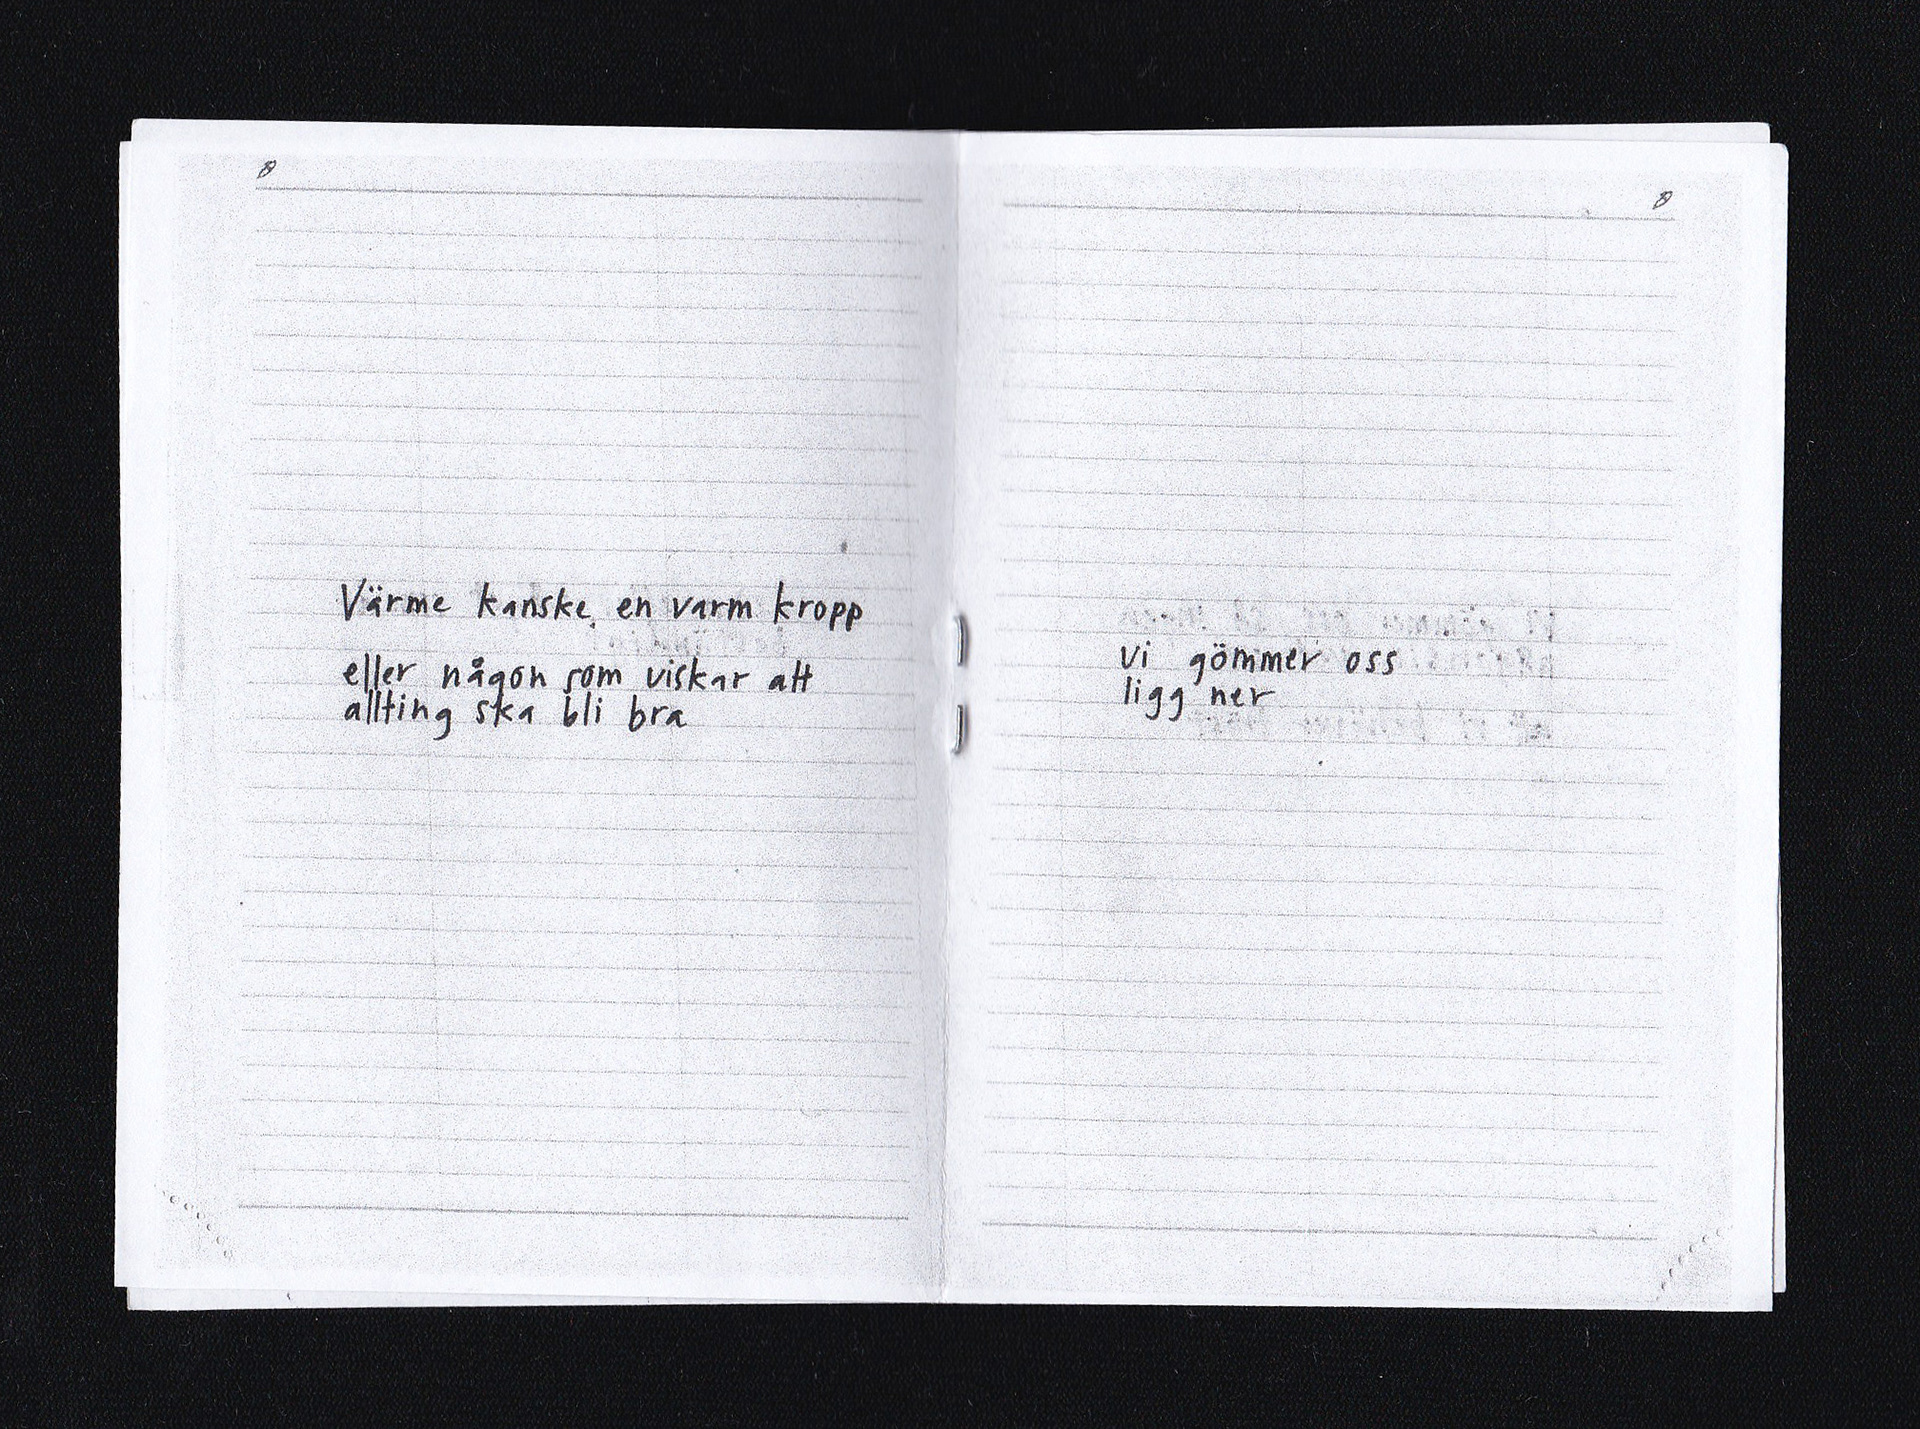 Värme kanske, en varm kropp
eller någon som viskar att
allting ska bli bra
vi gömmer oss
ligg ner